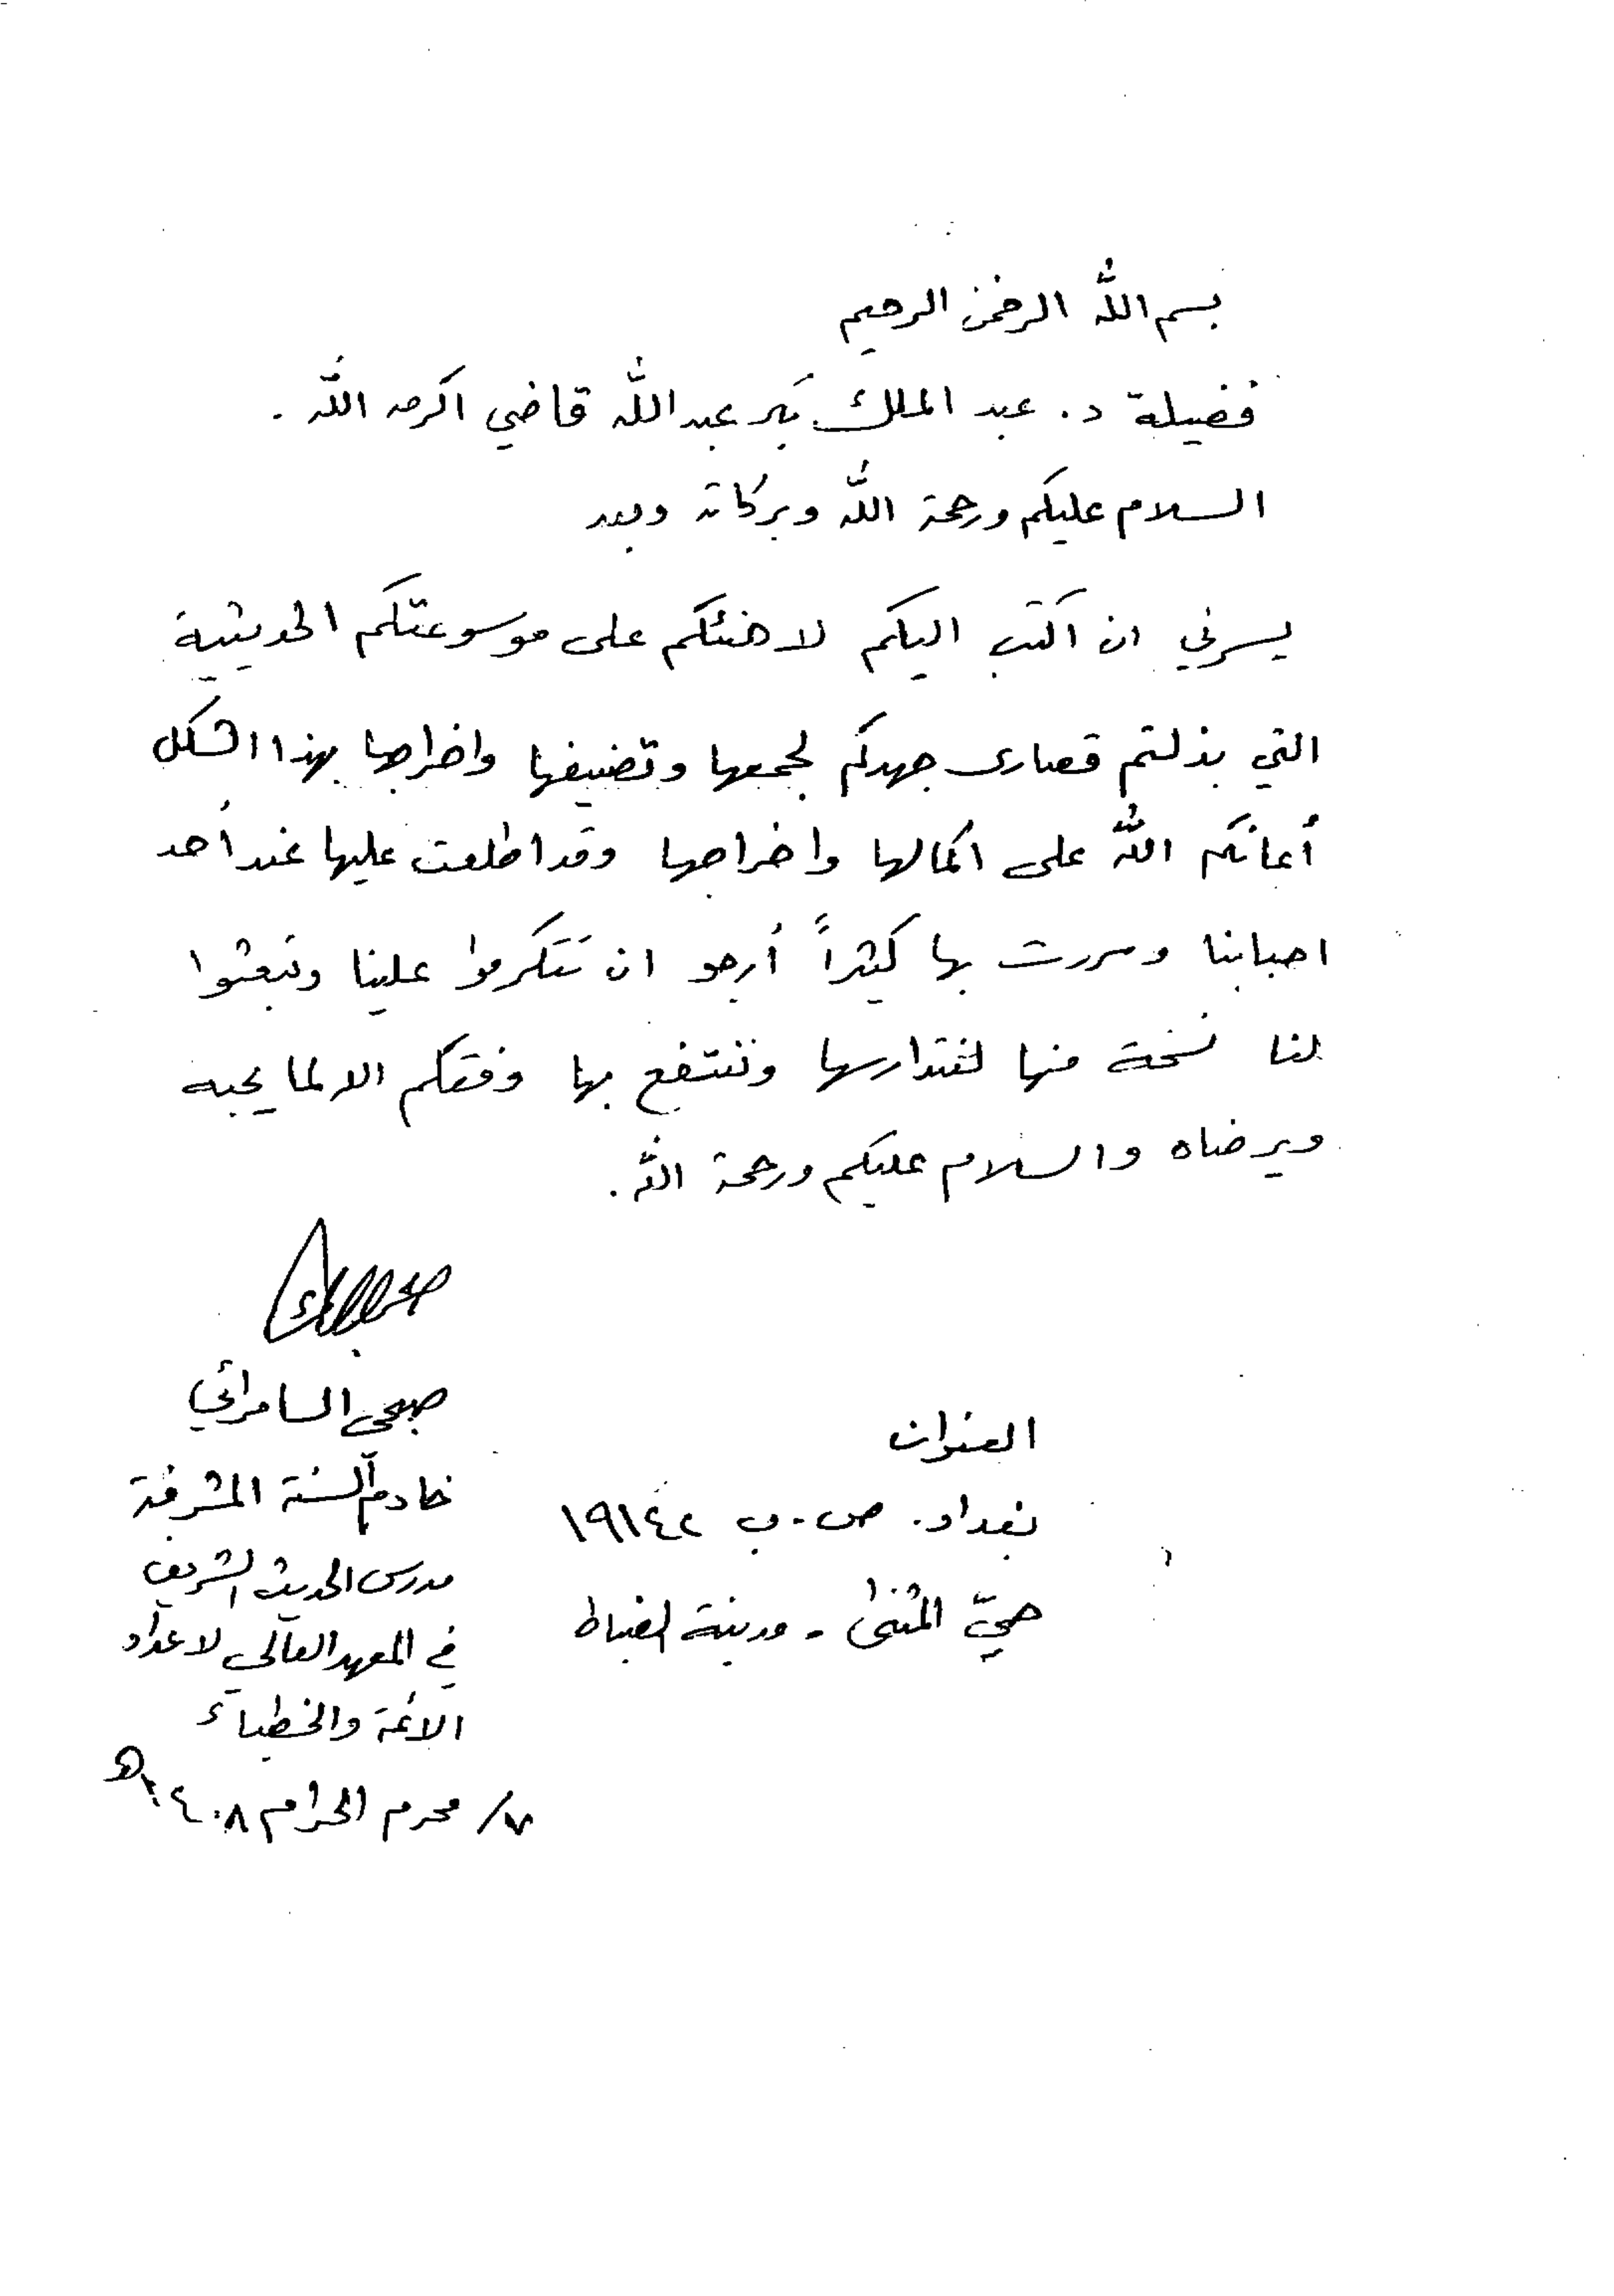 بسم الله الرحمن الرحيم
فضيلة د. عبد الملك بكر عبدالله قاضي اكرمه الله .
السلام عليكم ورحمة الله وبركاته وبعد
يسرني ان اكتب اليكم لاهنئكم على موسوعتكم الحديثية
التي بذلتم قصارى جهدكم لجمعها وتصنيفها واخراجها بهذا الشكل
أعانكم الله على اكمالها واخراجها وقد اطلعت عليها عند أحد
احبابنا وسررت بها كثيراً أرجو ان تتكرموا علينا وتبعثوا
لنا نسخة منها لنتدارسها وننتفع بها وفقكم الله لما يحبه
ويرضاه والسلام عليكم ورحمة الله.
صبحي السامرائي
خادم السنة المشرفة
مدرس الحديث الشريف
في المعهد العالي لاعداد
الائمة والخطباء
٧/ محرم الحرام ١٤٠٨ه
العنوان
بغداد. ص.ب ١٩١٤٢
حيّ المثنى - مدينة الضباط